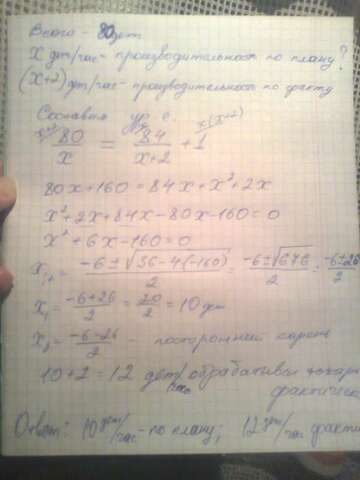 Всего - 80 дет
x дет/час - производительность по плану?
(x+2) дет/час - производительность по факту
Составим ур-е.
x+2 x(x+2)
80/x = 84/x+2 + 1
80x+160=84x+x²+2x
x²+2x+84x-80x-160=0
x²+6x-160=0
x₁,₂ = -6±√36-4(-160)/2 = -6±√676/2 = -6±26/2
x₁ = -6+26/2 = 20/2 = 10 дет
x₂ = -6-26/2 - посторонний корень
10+2=12 дет/час обрабатывал токарь
фактичес
Ответ: 10 дет/час - по плану; 12 дет/час факти